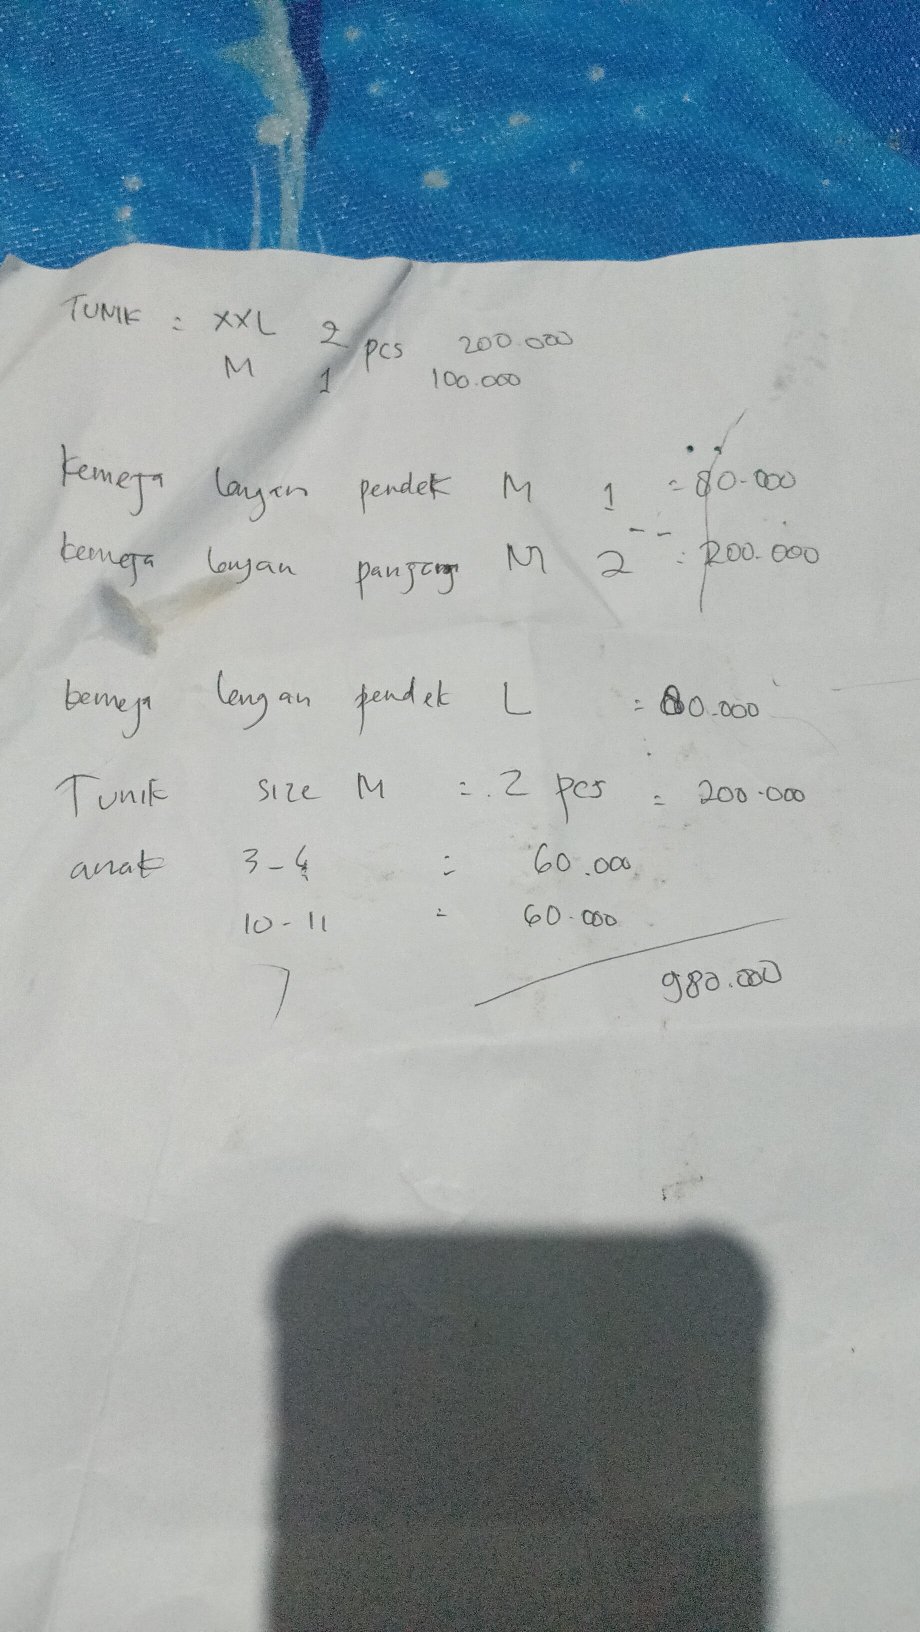 TUNIK : XXL 2 pcs 200.000
M 1 100.000
kemeja lengan pendek M 1 = 80.000
kemeja lengan panjang M 2 = 200.000
kemeja lengan pendek L = 80.000
Tunik size M = 2 pcs = 200.000
anak 3-4 = 60.000
10-11 = 60.000
980.000